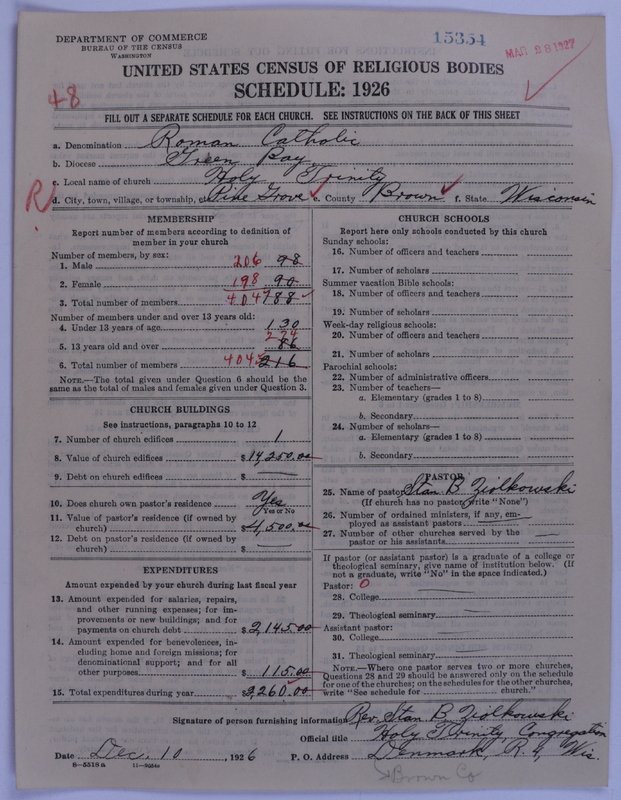 DEPARTMENT OF COMMERCE
BUREAU OF THE CENSUS
WASHINGTON
15354
MAR 28 1927
UNITED STATES CENSUS OF RELIGIOUS BODIES
SCHEDULE: 1926
48
FILL OUT A SEPARATE SCHEDULE FOR EACH CHURCH. SEE INSTRUCTIONS ON THE BACK OF THIS SHEET
a. Denomination Roman Catholic
b. Diocese Green Bay
c. Local name of church Holy Trinity
R
d. City, town, village, or township, etc Pine Grove e. County Brown f. State Wisconsin
MEMBERSHIP
Report number of members according to definition of
member in your church
Number of members, by sex:
1. Male 206 98
2. Female 198 90
3. Total number of members 404 188
Number of members under and over 13 years old:
4. Under 13 years of age 130
5. 13 years old and over 274 86
6. Total number of members 404 216
NOTE.—The total given under Question 6 should be the
same as the total of males and females given under Question 3.
CHURCH BUILDINGS
See instructions, paragraphs 10 to 12
7. Number of church edifices 1
8. Value of church edifices $14,250.00
9. Debt on church edifices $ —
10. Does church own pastor's residence Yes
Yes or No
11. Value of pastor's residence (if owned by
church) $4,500.00
12. Debt on pastor's residence (if owned by
church) $ —
EXPENDITURES
Amount expended by your church during last fiscal year
13. Amount expended for salaries, repairs,
and other running expenses; for im-
provements or new buildings; and for
payments on church debt $2,145.00
14. Amount expended for benevolences, in-
cluding home and foreign missions; for
denominational support; and for all
other purposes $115.00
15. Total expenditures during year $2,260.00
CHURCH SCHOOLS
Report here only schools conducted by this church
Sunday schools:
16. Number of officers and teachers
17. Number of scholars
Summer vacation Bible schools:
18. Number of officers and teachers
19. Number of scholars
Week-day religious schools:
20. Number of officers and teachers
21. Number of scholars
Parochial schools:
22. Number of administrative officers
23. Number of teachers—
a. Elementary (grades 1 to 8)
b. Secondary
24. Number of scholars—
a. Elementary (grades 1 to 8)
b. Secondary
PASTOR
25. Name of pastor Stan B. Ziolkowski
(If church has no pastor, write "None")
26. Number of ordained ministers, if any, em-
ployed as assistant pastors —
27. Number of other churches served by the
pastor or his assistants —
If pastor (or assistant pastor) is a graduate of a college or
theological seminary, give name of institution below. (If
not a graduate, write "No" in the space indicated.)
Pastor: 0
28. College —
29. Theological seminary —
Assistant pastor:
30. College —
31. Theological seminary —
NOTE.—Where one pastor serves two or more churches,
Questions 28 and 29 should be answered only on the schedule
for one of the churches; on the schedules for the other churches,
write "See schedule for church."
Signature of person furnishing information Rev. Stan B. Ziolkowski
Official title Holy Trinity Congregation
Date Dec. 10, 1926 P. O. Address Denmark, R. 4, Wis.
8—5518a 11—9254a
Brown Co